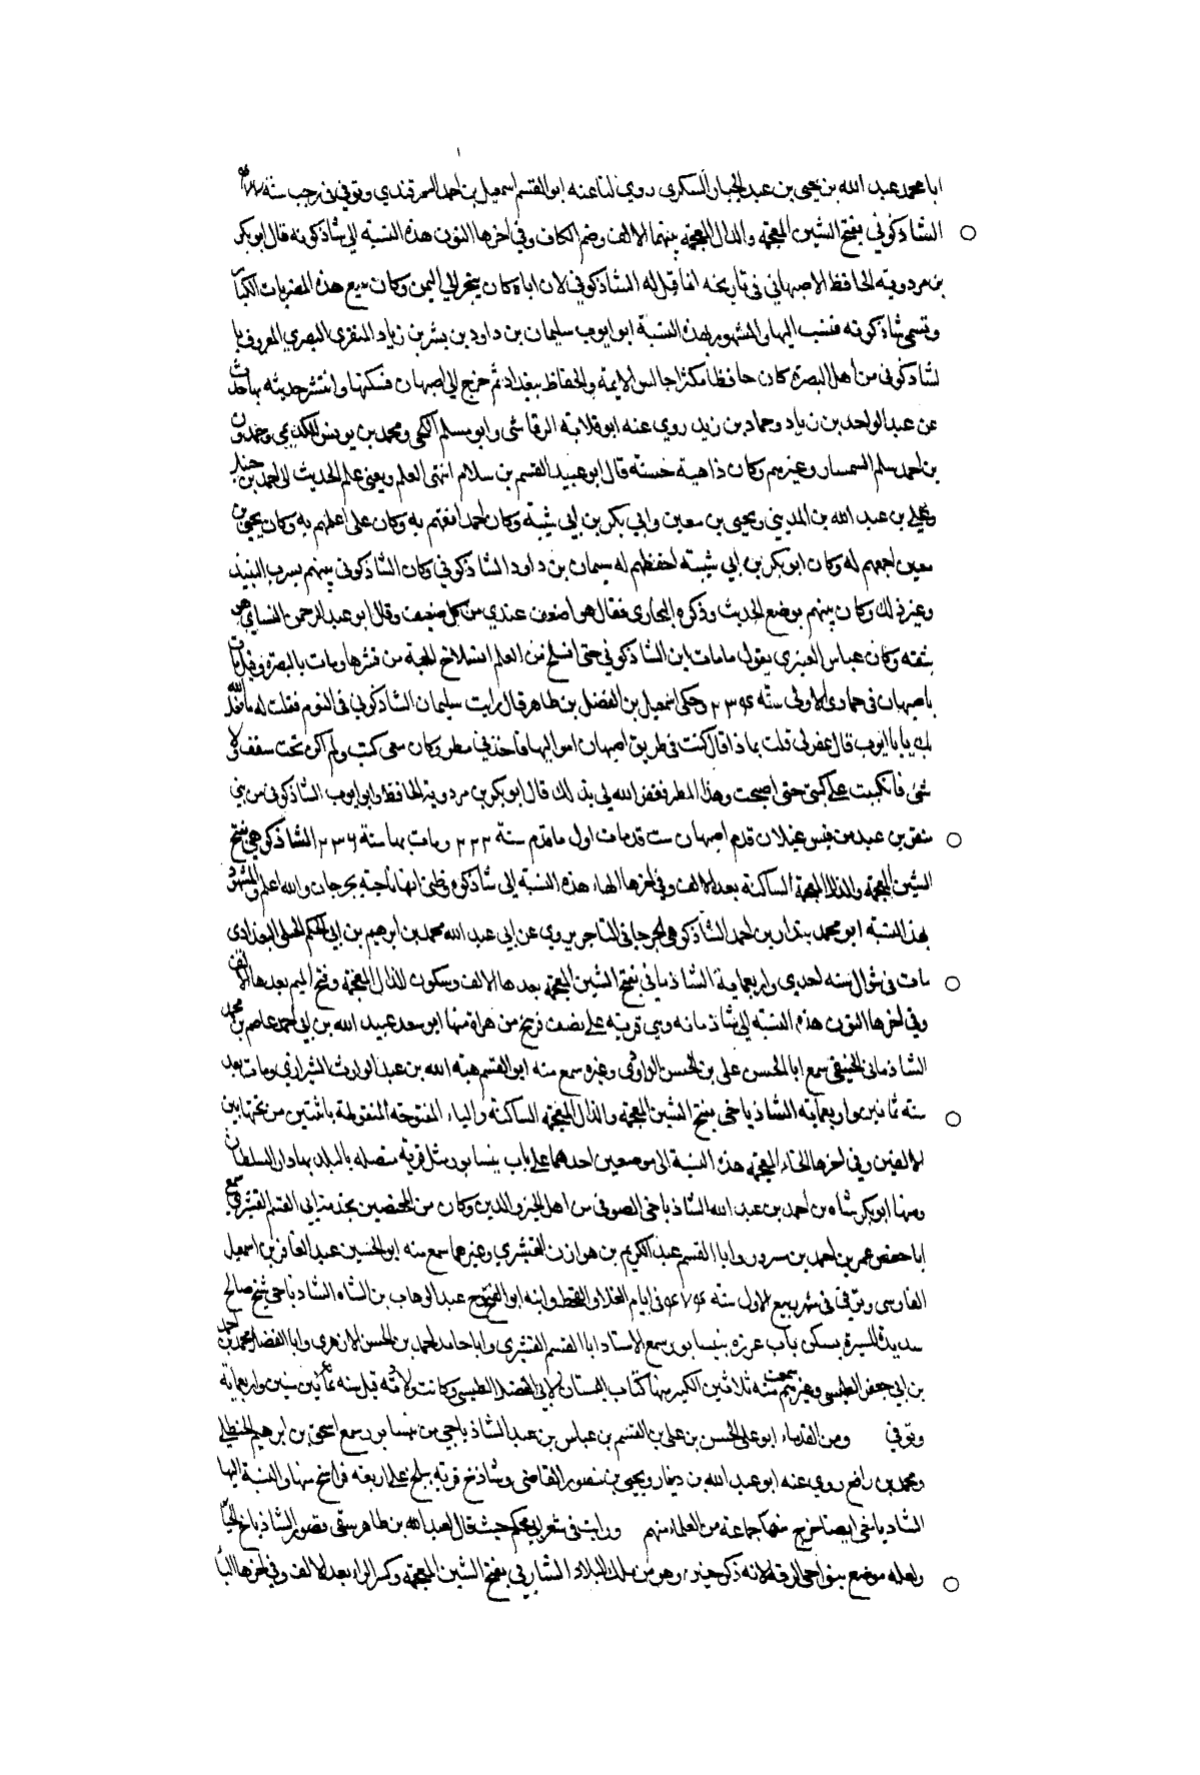 ابا محمد عبد الله بن يحيى بن عبد الجبار السكري روى لنا عنه ابو القسم اسمعيل بن احمد السمرقندي وتوفي في رجب سنة
الشاذكوني بفتح الشين المعجمة والذال المعجمة بينهما الالف وضم الكاف وفي اخرها النون هذه النسبة الى شاذكونه قال ابو بكر
بن مردويه الحافظ الاصبهاني في تاريخه انما قيل له الشاذكوني لان اباه كان يتجر الى اليمن وكان يبيع هذه المضربات الكبار
وتسمى شاذكونه فنسب اليها والمشهور بهذه النسبة ابو ايوب سليمان بن داود بن بشر بن زياد المنقري البصري المعروف با
لشاذكوني من اهل البصرة كان حافظا مكثرا جالس الايمة والحفاظ ببغداد ثم خرج الى اصبهان فسكنها وانتشر حديثه بها حدث
عن عبد الواحد بن زياد وحماد بن زيد روى عنه ابو قلابة الرقاشي وابو مسلم الكجي ومحمد بن يونس الكديمي وحمدون
بن احمد سلم السمسار وغيرهم وكان ذا هيبة حسنة قال ابو عبيد القسم بن سلام انتهى العلم ويعني علم الحديث الى احمد بن حنبل
وعلي بن عبد الله بن المديني ويحيى بن معين وابي بكر بن ابي شيبة وكان احمد افقههم به وكان علي اعلمهم به وكان يحيى بن
معين اجمعهم له وكان ابو بكر بن ابي شيبة احفظهم له سيمان بن داود الشاذكوني وكان الشاذكوني يتهم بشرب النبيذ
وغير ذلك وكان يتهم بوضع الحديث وذكره البخاري فقال هو اضعف عندي من كل ضعيف وقال ابو عبد الرحمن النسائي هو
بثقه وكان عباس العنبري يقول ما مات ابن الشاذكوني حتى انسلخ من العلم انسلاخ الحية من قشرها ومات بالبصرة وقيل مات
باصبهان في جمادى الاولى سنة ٢٣٤ وحكى اسمعيل بن الفضل بن طاهر قال رايت سليمان الشاذكوني في النوم فقلت له ما فعل الله
بك يا با ايوب قال غفر لي قلت بما ذا قال كنت في طريق اصبهان امر اليها فاخذني مطر وكان معي كتب ولم اكن تحت سقف ولا
شي فانكببت على كتبي حتى اصبحت وهذا المطر فغفر الله لي بذلك قال ابو بكر بن مردويه الحافظ وابو ايوب الشاذكوني من بني
منقر بن عبيد من قيس غيلان قدم اصبهان ست قدمات اول ما قدم سنة ٢٢٣ ومات بها سنة ٢٣٦ الشاذكوهي بفتح
الشين المعجمة والذال المعجمة الساكنة بعد الالف وفي اخرها الهاء هذه النسبة الى شاذكوه وظني انها ناحية بجرجان والله اعلم والمشهور
بهذا النسبة ابو محمد بندار بن احمد الشاذكوهي الجرجاني التاجر يروي عن ابي عبد الله محمد بن ابرهيم بن ابي الحكم الختلي البغدادي
مات في شوال سنه احدى واربعماية الشاذماني بفتح الشين المعجمة بعدها الالف وسكون الذال المعجمة وفتح الميم بعدها الالف
وفي اخرها النون هذه النسبة الى شاذمانه وهي قرية على نصف فرسخ من هراة منها ابو سعد عبيد الله بن ابي احمد عاصم بن محمد
الشاذماني الحنيفي سمع ابا الحسن علي بن الحسن الداودي وغيره سمع منه ابو القسم هبة الله بن عبد الوارث الشيرازي ومات بعد
سنة ثمانين واربعماية الشاذياخي بفتح الشين المعجمة والذال المعجمة الساكنة والياء المفتوحة المنقوطة باثنتين من تحتها بين
الالفين وفي اخرها الخاء المعجمة هذه النسبة الى موضعين احدهما على باب نيسابور مثل قرية متصله بالبلد بها دار السلطان
ومنها ابو بكر شاه بن احمد بن عبد الله الشاذياخي الصوفي من اهل الخير والدين وكان من المختصين بخدمة ابي القسم القشيري سمع
ابا حفص عمر بن احمد بن مسرور وابا القسم عبد الكريم بن هوازن القشيري وغيرهما سمع منه ابو الحسين عبد الغافر بن اسمعيل
الفارسي وتوفي في شهر ربيع الاول سنة في ايام الغلا والقحط وابنه ابو الفتوح عبد الوهاب بن الشاه الشاذياخي شيخ صالح
سديد السيرة يسكن باب عزره بنيسابور سمع الاستاد ابا القسم القشيري وابا حامد احمد بن الحسن الازهري وابا الفضل محمد بن احمد
بن ابي جعفر الطبسي وغيرهم سمعت منه ثلاثين الكبير منها كتاب البستان لابي الفضل الطبسي وكانت ولادته قبل سنه ثمانين سنين واربعماية
وتوفي ومن القدماء ابو علي الحسن بن علي بن القسم بن عباس بن عبد الشاذياجي من نيسابور سمع اسحق بن ابرهيم الحنظلي
ومحمد بن رافع روى عنه ابو عبد الله بن دينار ويحيى بن منصور القاضي وشاذخ قرية ببلخ على اربعة فراسخ منها والنسبة اليها
الشاذياخي ايضا خرج منها جماعة من العلماء منهم ورايت في شعر ابي محكم حيث قال لعبد الله بن طاهر سقى قصور الشاذياخ الحيا
ولعله موضع بنواحي الرقة لانه ذكر خير وهو من تلك البلاد الشاربي بفتح الشين المعجمة وكسر الراء بعد الالف وفي اخرها البا